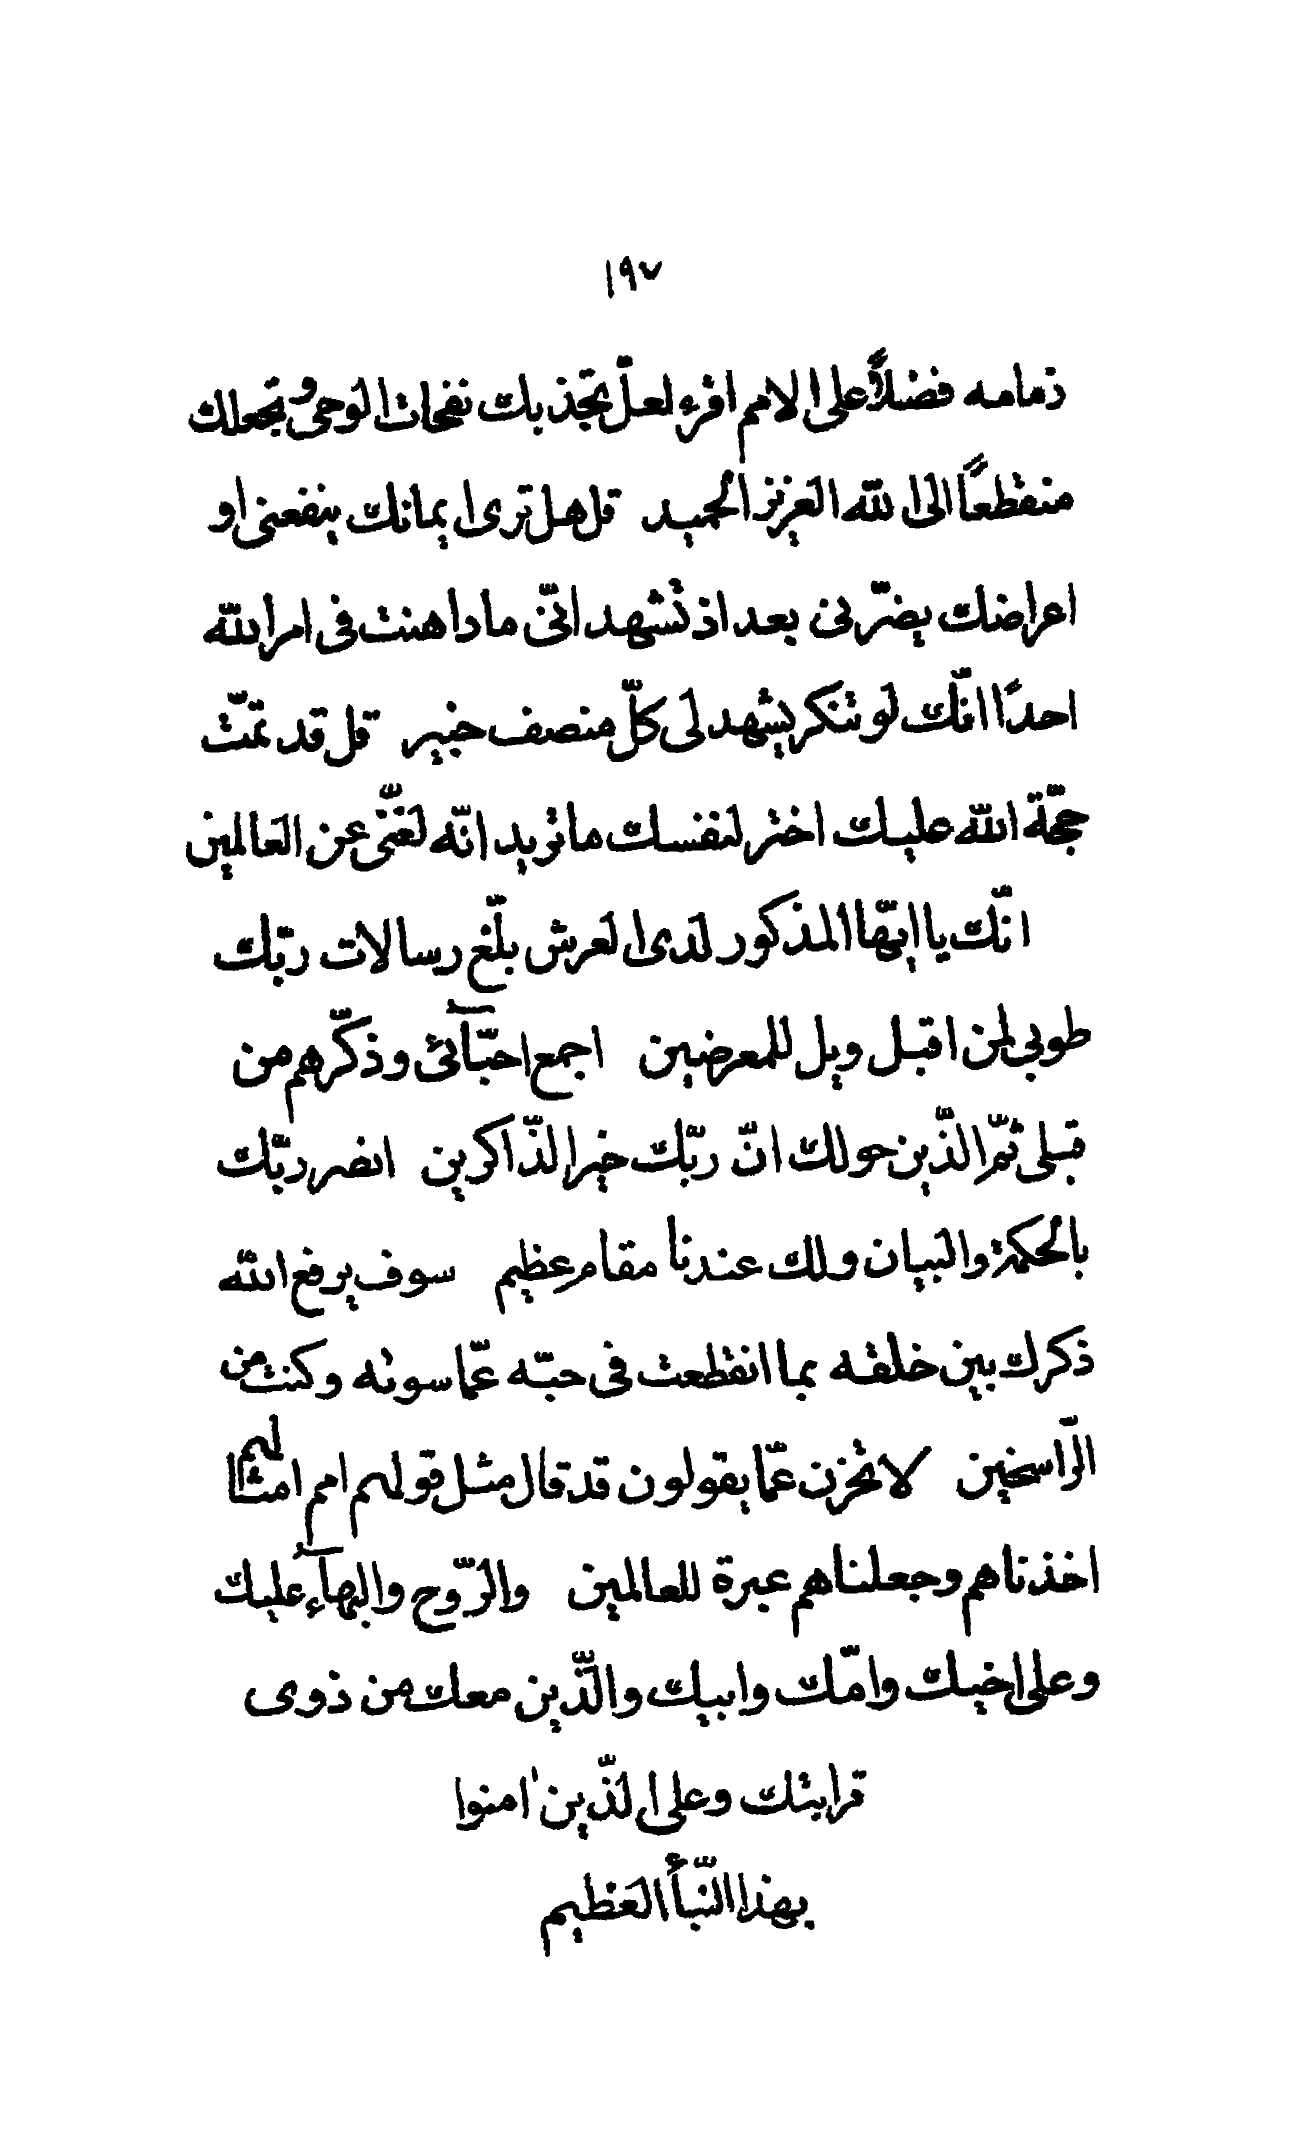 ١٩٧
ذمامه فضلاً على الامم اقرء لعلّ تجذبك نفحات الوحى و تجعلك
منقطعًا الى الله العزيز الحميد قل هل ترى ايمانك ينفعنى او
اعراضك يضرّنى بعد اذ تشهد انّنى ما داهنت فى امر الله
احدًا انّك لو تنكر يشهد لى كلّ منصف خبير قل قد تمّت
حجّة الله عليك اختر لنفسك ما تريد انّه لغنّى عن العالمين
انّك يا ايّها المذكور لدى العرش بلّغ رسالات ربّك
طوبى لمن اقبل ويل للمعرضين اجمع احبّآئى و ذكّرهم من
قبلى ثمّ الّذين حولك انّ ربّك خير الذّاكرين انصر ربّك
بالحكمة والبيان و لك عندنا مقام عظيم سوف يرفع الله
ذكرك بين خلقه بما انقطعت فى حبّه عمّا سوئه و كنت من
الرّاسخين لا تحزن عمّا يقولون قد قال مثل قولهم امم امثالهم
اخذناهم و جعلناهم عبرة للعالمين والرّوح والبهآء عليك
و على اخيك و امّك و ابيك و الّذين معك من ذوى
قرابتك و على الّذين اٰمنوا
بهذا النّبأ العظيم